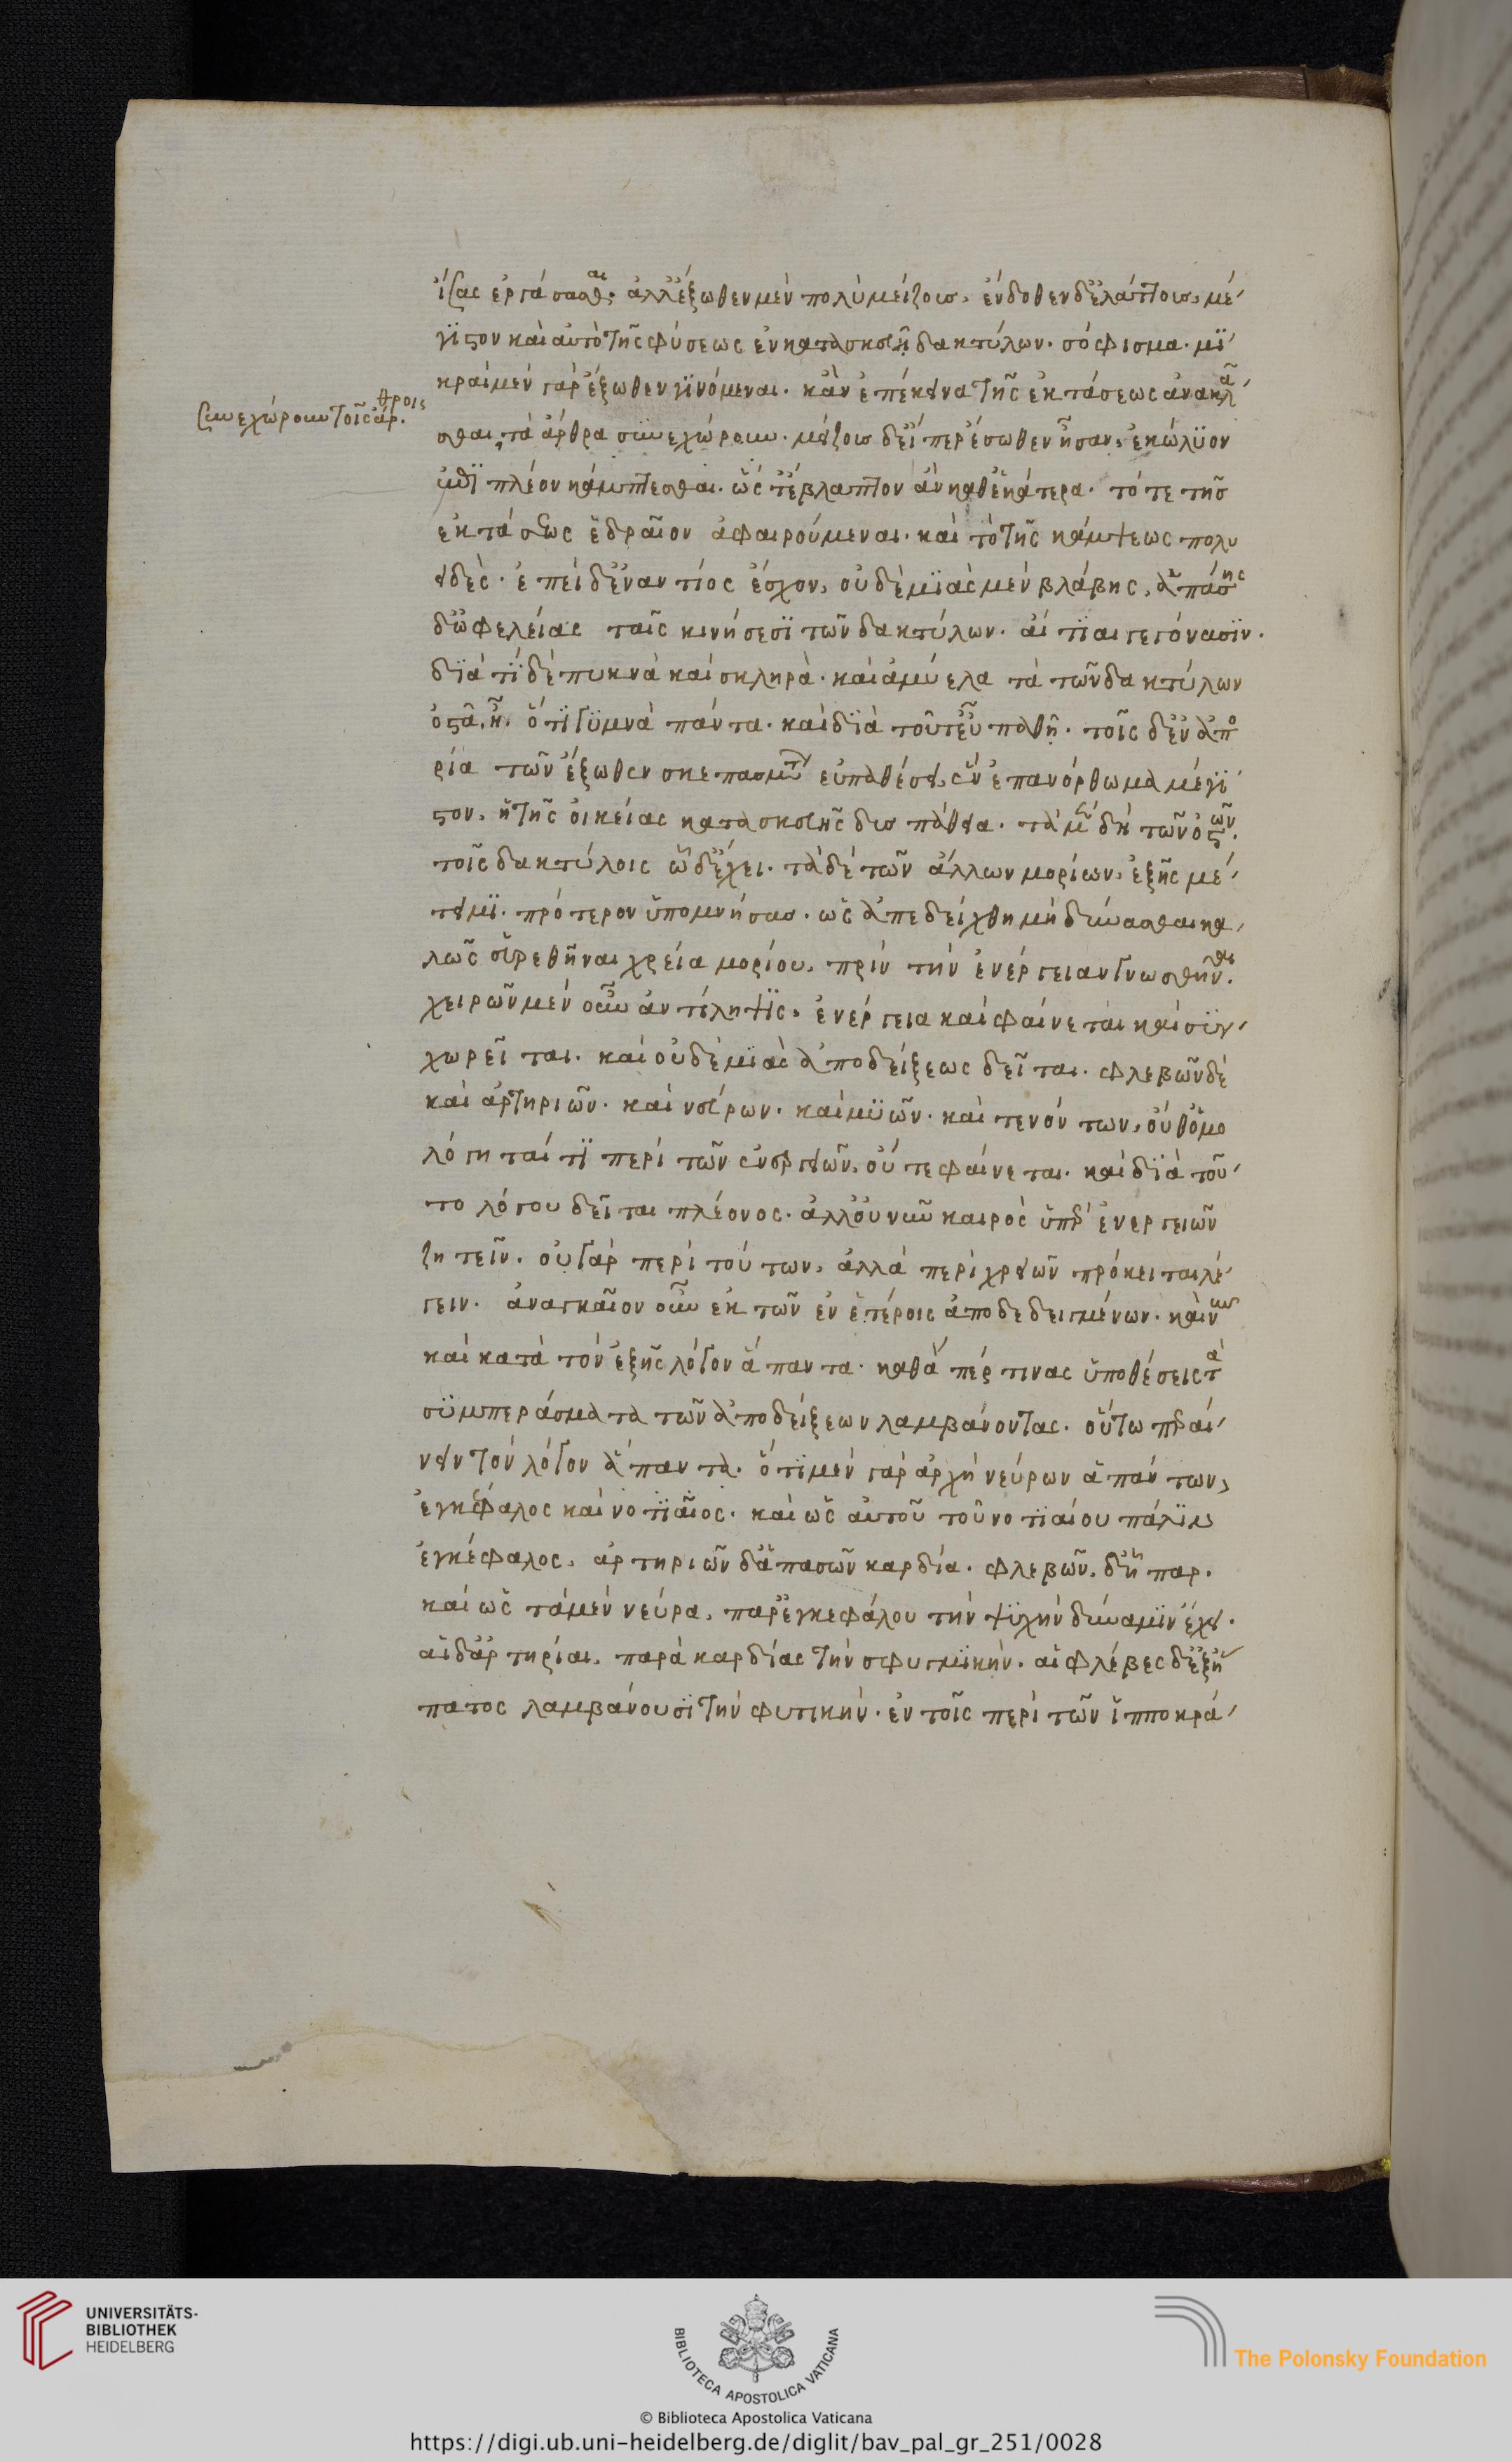 ἴσας ἐργάσασθαι· ἀλλ' ἔξωθεν μὲν πολὺ μείζους, ἔνδοθεν δ' ἐλάττους, μέ
γιστον καὶ αὐτὸ τῆς φύσεως ἐν κατασκευῇ δακτύλων. σόφισμα. μι
κραὶ μὲν γὰρ ἔξωθεν γινόμεναι. κἂν ἐπέκεινα τῆς ἐκτάσεως ἀνακλᾶ
συνεχώρουν τοῖς ἄρθροις
σθαι τὰ ἄρθρα συνεχώρουν. μείζους δ' εἴπερ ἔσωθεν ἦσαν, ἐκώλυον
ἐπὶ πλέον κάμπτεσθαι. ὥστ' ἔβλαπτον ἂν καθ' ἑκάτερα. τό τε τῆς
ἐκτάσεως ἑδραῖον ἀφαιρούμεναι. καὶ τὸ τῆς κάμψεως πολυ
ειδές. ἐπεὶ δ' ἐναντίως ἔσχον, οὐδεμιᾶς μὲν βλάβης, ἁπάσης
δ' ὠφελείας ταῖς κινήσεσι τῶν δακτύλων. αἴτιαι γεγόνασιν.
διὰ τί δὲ πυκνὰ καὶ σκληρὰ. καὶ ἀμύελα τὰ τῶν δακτύλων
ὀστᾶ, ἢ ὅτι γυμνὰ πάντα. καὶ διὰ τοῦτ' εὐπαθῆ. τοῖς δ' ἐν ἀπο
ρίᾳ τῶν ἔξωθεν σκεπασμάτων εὐπαθέσι, ἓν ἐπανόρθωμα μέγι
στον, ἡ τῆς οἰκείας κατασκευῆς δυσπάθεια. τὰ μὲν δὴ τῶν ὀστῶν.
τοῖς δακτύλοις ὧδ' ἔχει. τὰ δὲ τῶν ἄλλων μορίων, ἑξῆς μέ
τειμι. πρότερον ὑπομνήσας. ὡς ἀπεδείχθη μὴ δύνασθαι κα
λῶς εὑρεθῆναι χρεία μορίου, πρὶν τὴν ἐνέργειαν γνωσθῆναι.
χειρῶν μὲν οὖν ἀντίληψις, ἐνέργεια καὶ φαίνεται καὶ συγ
χωρεῖται. καὶ οὐδεμιᾶς ἀποδείξεως δεῖται. φλεβῶν δὲ
καὶ ἀρτηριῶν. καὶ νεύρων. καὶ μυῶν. καὶ τενόντων, οὔθ' ὁμο
λόγηταί τι περὶ τῶν ἐνεργειῶν, οὔτε φαίνεται. καὶ διὰ τοῦ
το λόγου δεῖται πλέονος. ἀλλ' οὐ νῦν καιρὸς ὑπὲρ ἐνεργειῶν
ζητεῖν. οὐ γὰρ περὶ τούτων, ἀλλὰ περὶ χρειῶν πρόκειται λέ
γειν. ἀναγκαῖον οὖν ἐκ τῶν ἐν ἑτέροις ἀποδεδειγμένων. καὶ νῦν
καὶ κατὰ τὸν ἑξῆς λόγον ἅπαντα. καθάπερ τινας ὑποθέσεις τὰ
συμπεράσματα τῶν ἀποδείξεων λαμβάνοντας. οὕτω περαί
νειν τὸν λόγον ἅπαντα. ὅτι μὲν γὰρ ἀρχὴ νεύρων ἁπάντων,
ἐγκέφαλος καὶ νοτιαῖος. καὶ ὡς αὐτοῦ τοῦ νοτιαίου πάλιν
ἐγκέφαλος, ἀρτηριῶν δ' ἁπασῶν καρδία. φλεβῶν, δ' ἧπαρ.
καὶ ὡς τὰ μὲν νεῦρα, παρ' ἐγκεφάλου τὴν ψυχὴν δύναμιν ἔχει.
αἱ δ' ἀρτηρίαι, παρὰ καρδίας τὴν σφυγμικήν. αἱ φλέβες δ' ἐξ ἥ
πατος λαμβάνουσι τὴν φυτικήν. ἐν τοῖς περὶ τῶν ἱπποκρά
UNIVERSITÄTS-
BIBLIOTHEK
HEIDELBERG
BIBLIOTECA APOSTOLICA VATICANA
The Polonsky Foundation
© Biblioteca Apostolica Vaticana
https://digi.ub.uni-heidelberg.de/diglit/bav_pal_gr_251/0028